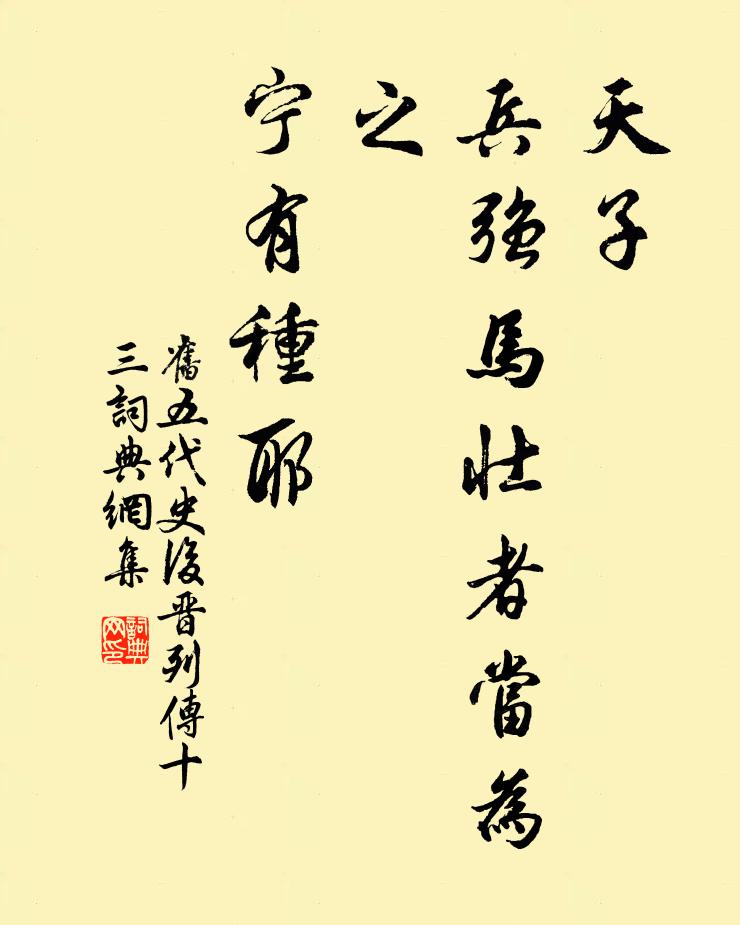 天子
兵強馬壯者當為
之
宁有種耶
舊五代史後晋列傳十
三詞典網集
詞典网印